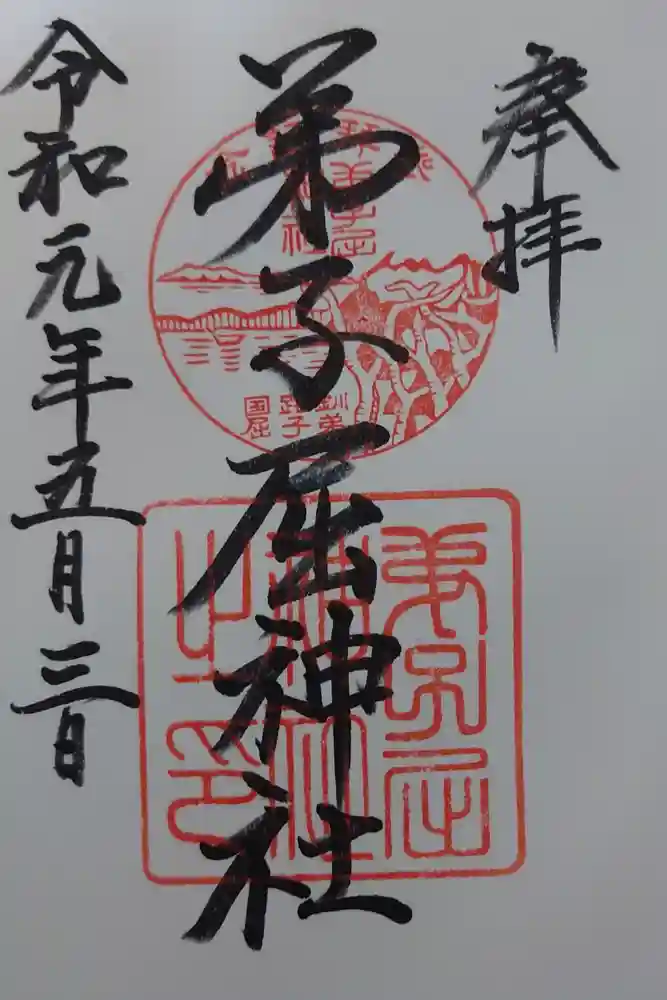 奉拝
弟子屈神社
令和元年五月三日
釧路国
弟子屈
弟子屈
神社
之印